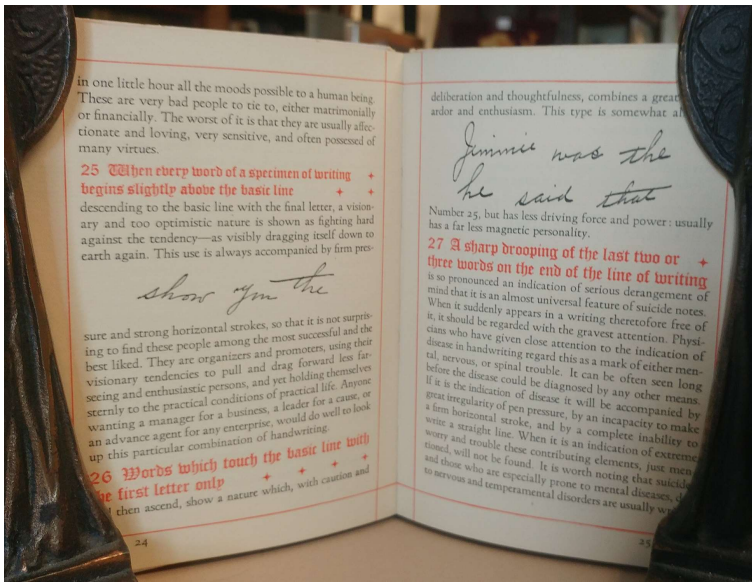 in one little hour all the moods possible to a human being.
These are very bad people to tie to, either matrimonially
or financially. The worst of it is that they are usually affec-
tionate and loving, very sensitive, and often possessed of
many virtues.
25 When every word of a specimen of writing
begins slightly above the basic line
descending to the basic line with the final letter, a vision-
ary and too optimistic nature is shown as fighting hard
against the tendency—as visibly dragging itself down to
earth again. This use is always accompanied by firm pres-
show you the
sure and strong horizontal strokes, so that it is not surpris-
ing to find these people among the most successful and the
best liked. They are organizers and promoters, using their
visionary tendencies to pull and drag forward less far-
seeing and enthusiastic persons, and yet holding themselves
sternly to the practical conditions of practical life. Anyone
wanting a manager for a business, a leader for a cause, or
an advance agent for any enterprise, would do well to look
up this particular combination of handwriting.
26 Words which touch the basic line with
first letter only
then ascend, show a nature which, with caution and
24
deliberation and thoughtfulness, combines a great
ardor and enthusiasm. This type is somewhat
Jimmie was the
he said that
Number 25, but has less driving force and power: usually
has a far less magnetic personality.
27 A sharp drooping of the last two or
three words on the end of the line of writing
is so pronounced an indication of serious derangement of
mind that it is an almost universal feature of suicide notes.
When it suddenly appears in a writing theretofore free of
it, it should be regarded with the gravest attention. Physi-
cians who have given close attention to the indication of
disease in handwriting regard this as a mark of either men-
tal, nervous, or spinal trouble. It can be often seen long
before the disease could be diagnosed by any other means.
If it is the indication of disease it will be accompanied by
great irregularity of pen pressure, by an incapacity to make
a firm horizontal stroke, and by a complete inability to
write a straight line. When it is an indication of extreme
worry and trouble these contributing elements, just men-
tioned, will not be found. It is worth noting that suicide
and those who are especially prone to mental diseases,
to nervous and temperamental disorders are usually
25